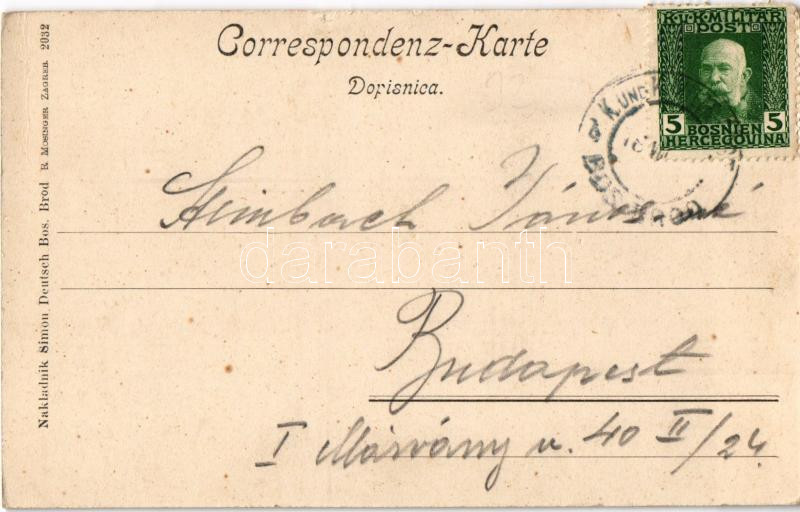 Correspondenz-Karte
Dopisnica.
K.U.K. MILITÄR
POST
5 BOSNIEN 5
HERCEGOVINA
K. UND K.
BOS. BROD
Steinbach Jánosné
Budapest
I Márvány u. 40 II/24.
Nakladnik Simon Deutsch Bos. Brod R. MOSINGER ZAGREB 2032
darabanth